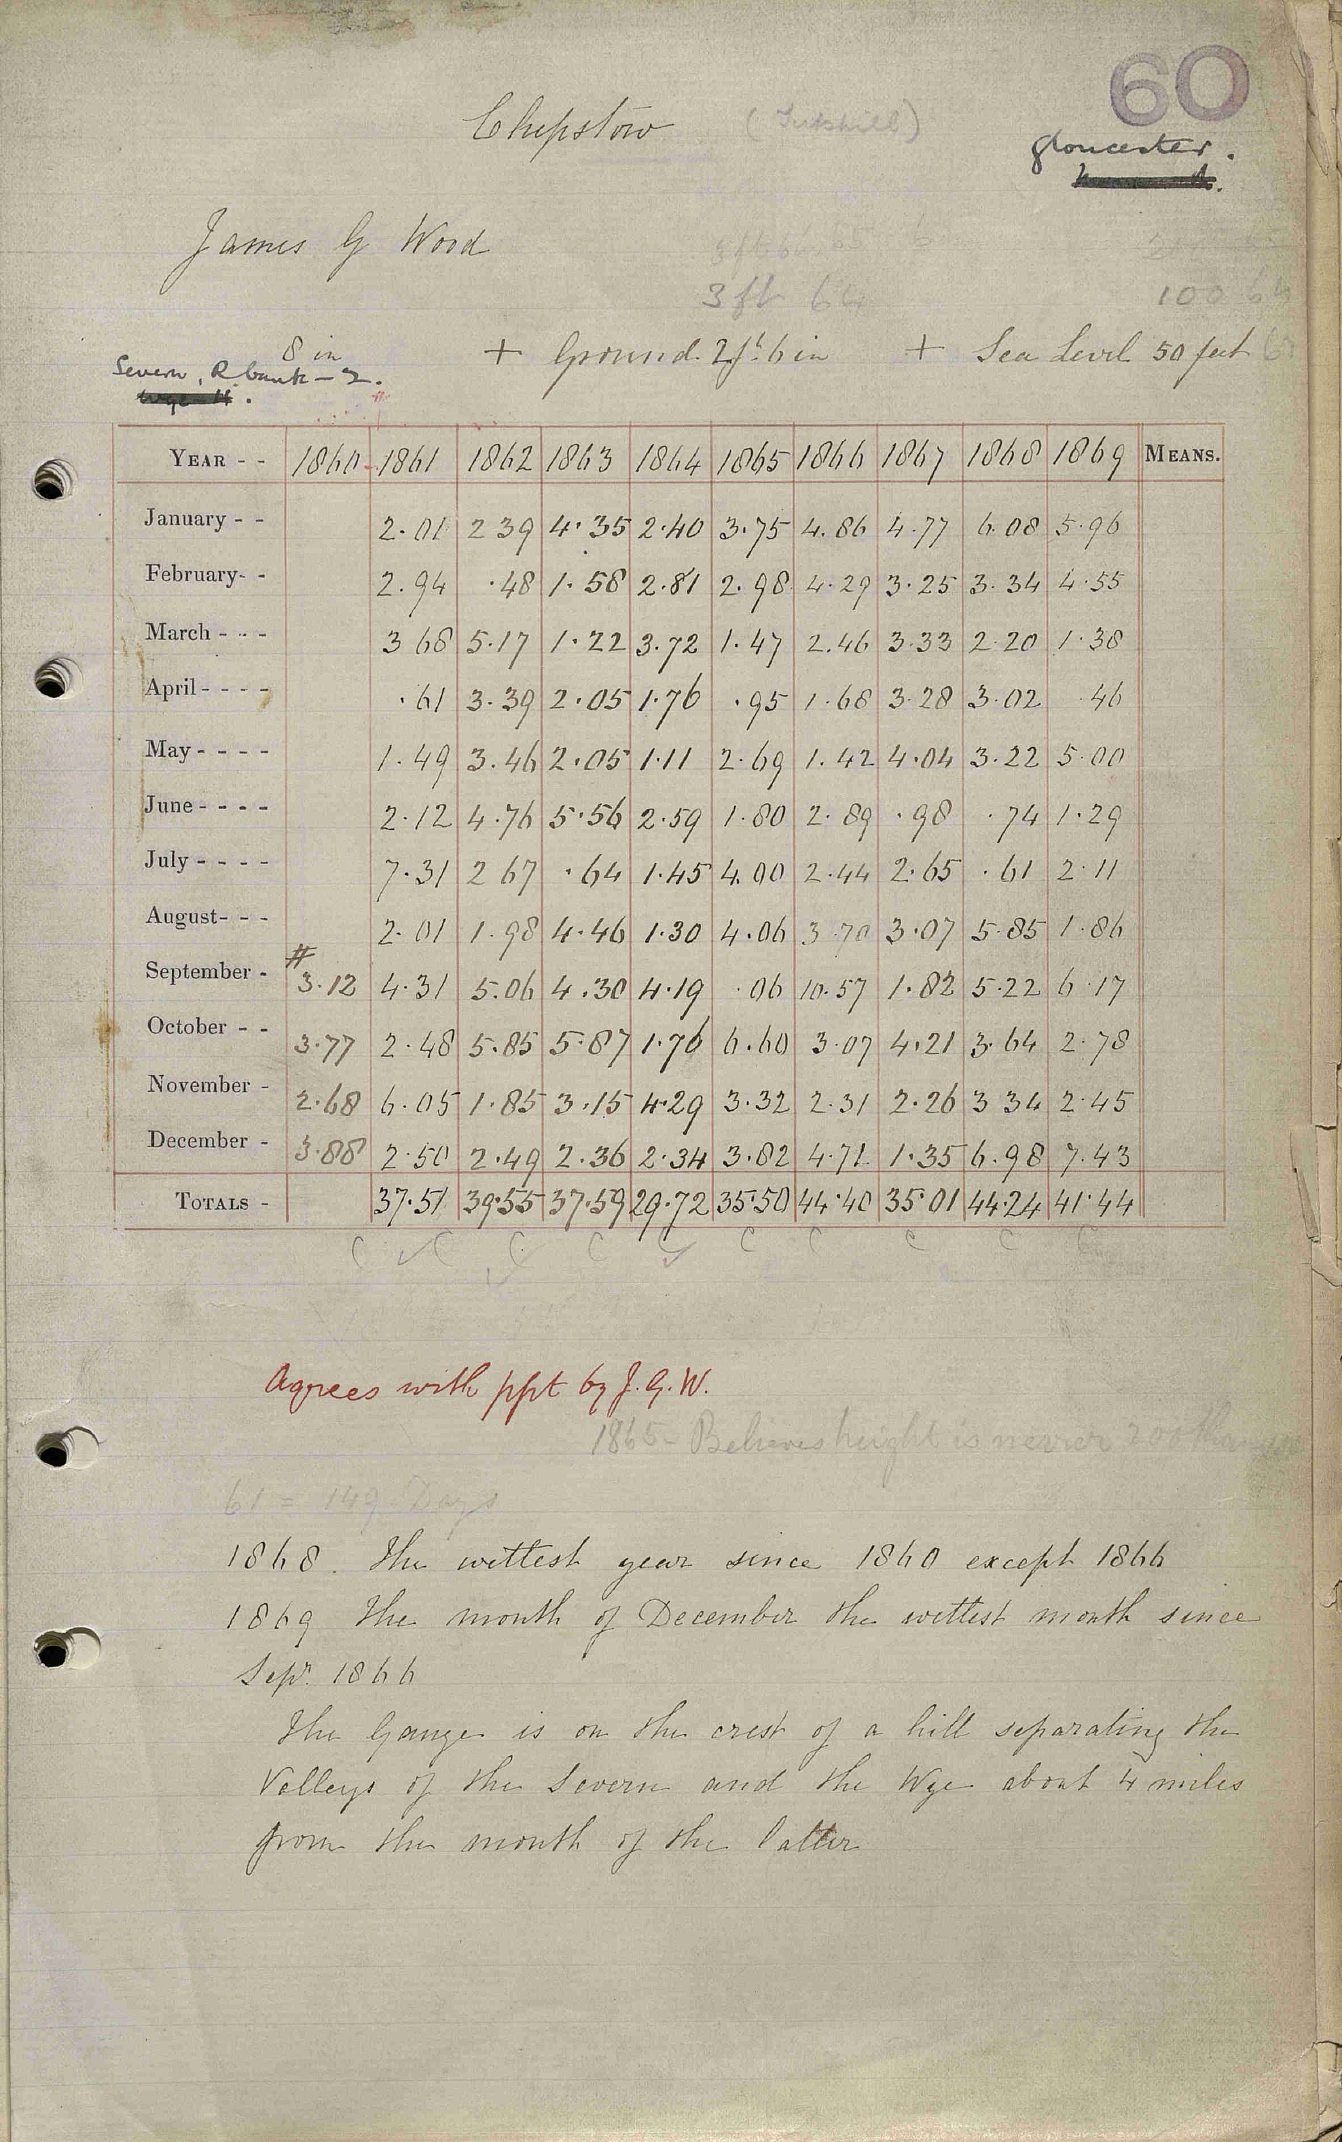 60
Chepstow (Tutshill)
Gloucester.
James G Wood
3 ft 64
100 64
8 in + Ground 2ft. 6 in + Sea Level 50 feet
Severn, R bank - 2.
YEAR - - 1860 1861 1862 1863 1864 1865 1866 1867 1868 1869 MEANS.
January - - 2.01 2 39 4.35 2.40 3.75 4.86 4.77 6.08 5.96
February- - 2.94 .48 1.58 2.81 2.98 4.29 3.25 3.34 4.55
March - - - 3 68 5.17 1.22 3.72 1.47 2.46 3.33 2.20 1.38
April - - - - .61 3.39 2.05 1.76 .95 1.68 3.28 3.02 .46
May - - - - 1.49 3.46 2.05 1.11 2.69 1.42 4.04 3.22 5.00
June - - - - 2.12 4.76 5.56 2.59 1.80 2.89 .98 .74 1.29
July - - - - 7.31 2 67 .64 1.45 4.00 2.44 2.65 .61 2.11
August- - - 2.01 1.98 4.46 1.30 4.06 3.70 3.07 5.85 1.86
#
September - 3.12 4.31 5.06 4.30 4.19 .06 10.57 1.82 5.22 6.17
October - - 3.77 2.48 5.85 5.87 1.76 6.60 3.07 4.21 3.64 2.78
November - 2.68 6.05 1.85 3.15 4.29 3.32 2.31 2.26 3 34 2.45
December - 3.88 2.50 2.49 2.36 2.34 3.82 4.71 1.35 6.98 7.43
TOTALS - 37.51 39.55 37.59 29.72 35.50 44.40 35.01 44.24 41.44
C C C C C C C C C
Agrees with ppt by J.G.W.
1865 - Believes height is nearer 200 than
61 = 149 Days
1868. The wettest year since 1860 except 1866
1869 The month of December the wettest month since
Sepr. 1866
The Gauge is on the crest of a hill separating the
Valleys of the Severn and the Wye about 4 miles
from the mouth of the latter